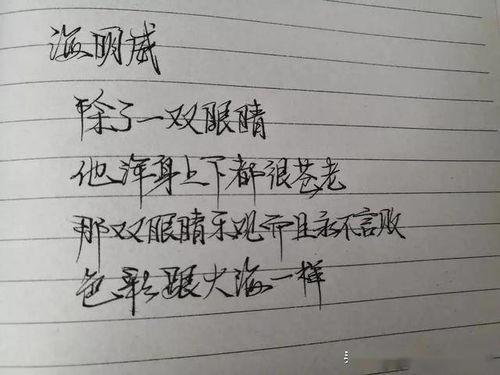 海明威
除了一双眼睛
他浑身上下都很苍老
那双眼睛乐观而且永不言败
色彩跟大海一样